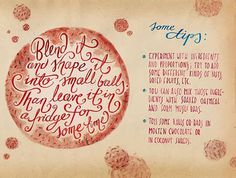 Blend it
and shape it
into small balls
Than leave it in
a fridge for
some time
some
tips:
EXPERIMENT WITH INGREDIENTS
AND PROPORTIONS, TRY TO ADD
SOME DIFFERENT KINDS OF NUTS,
DRIED FRUITS, ETC.
YOU CAN ALSO MIX THOSE INGRE-
DIENTS WITH SOAKED OATMEAL
AND FORM MUSLI BARS.
TOSS SOME BALLS OR BARS IN
MOLTEN CHOCOLATE OR
IN COCONUT SHREDS.